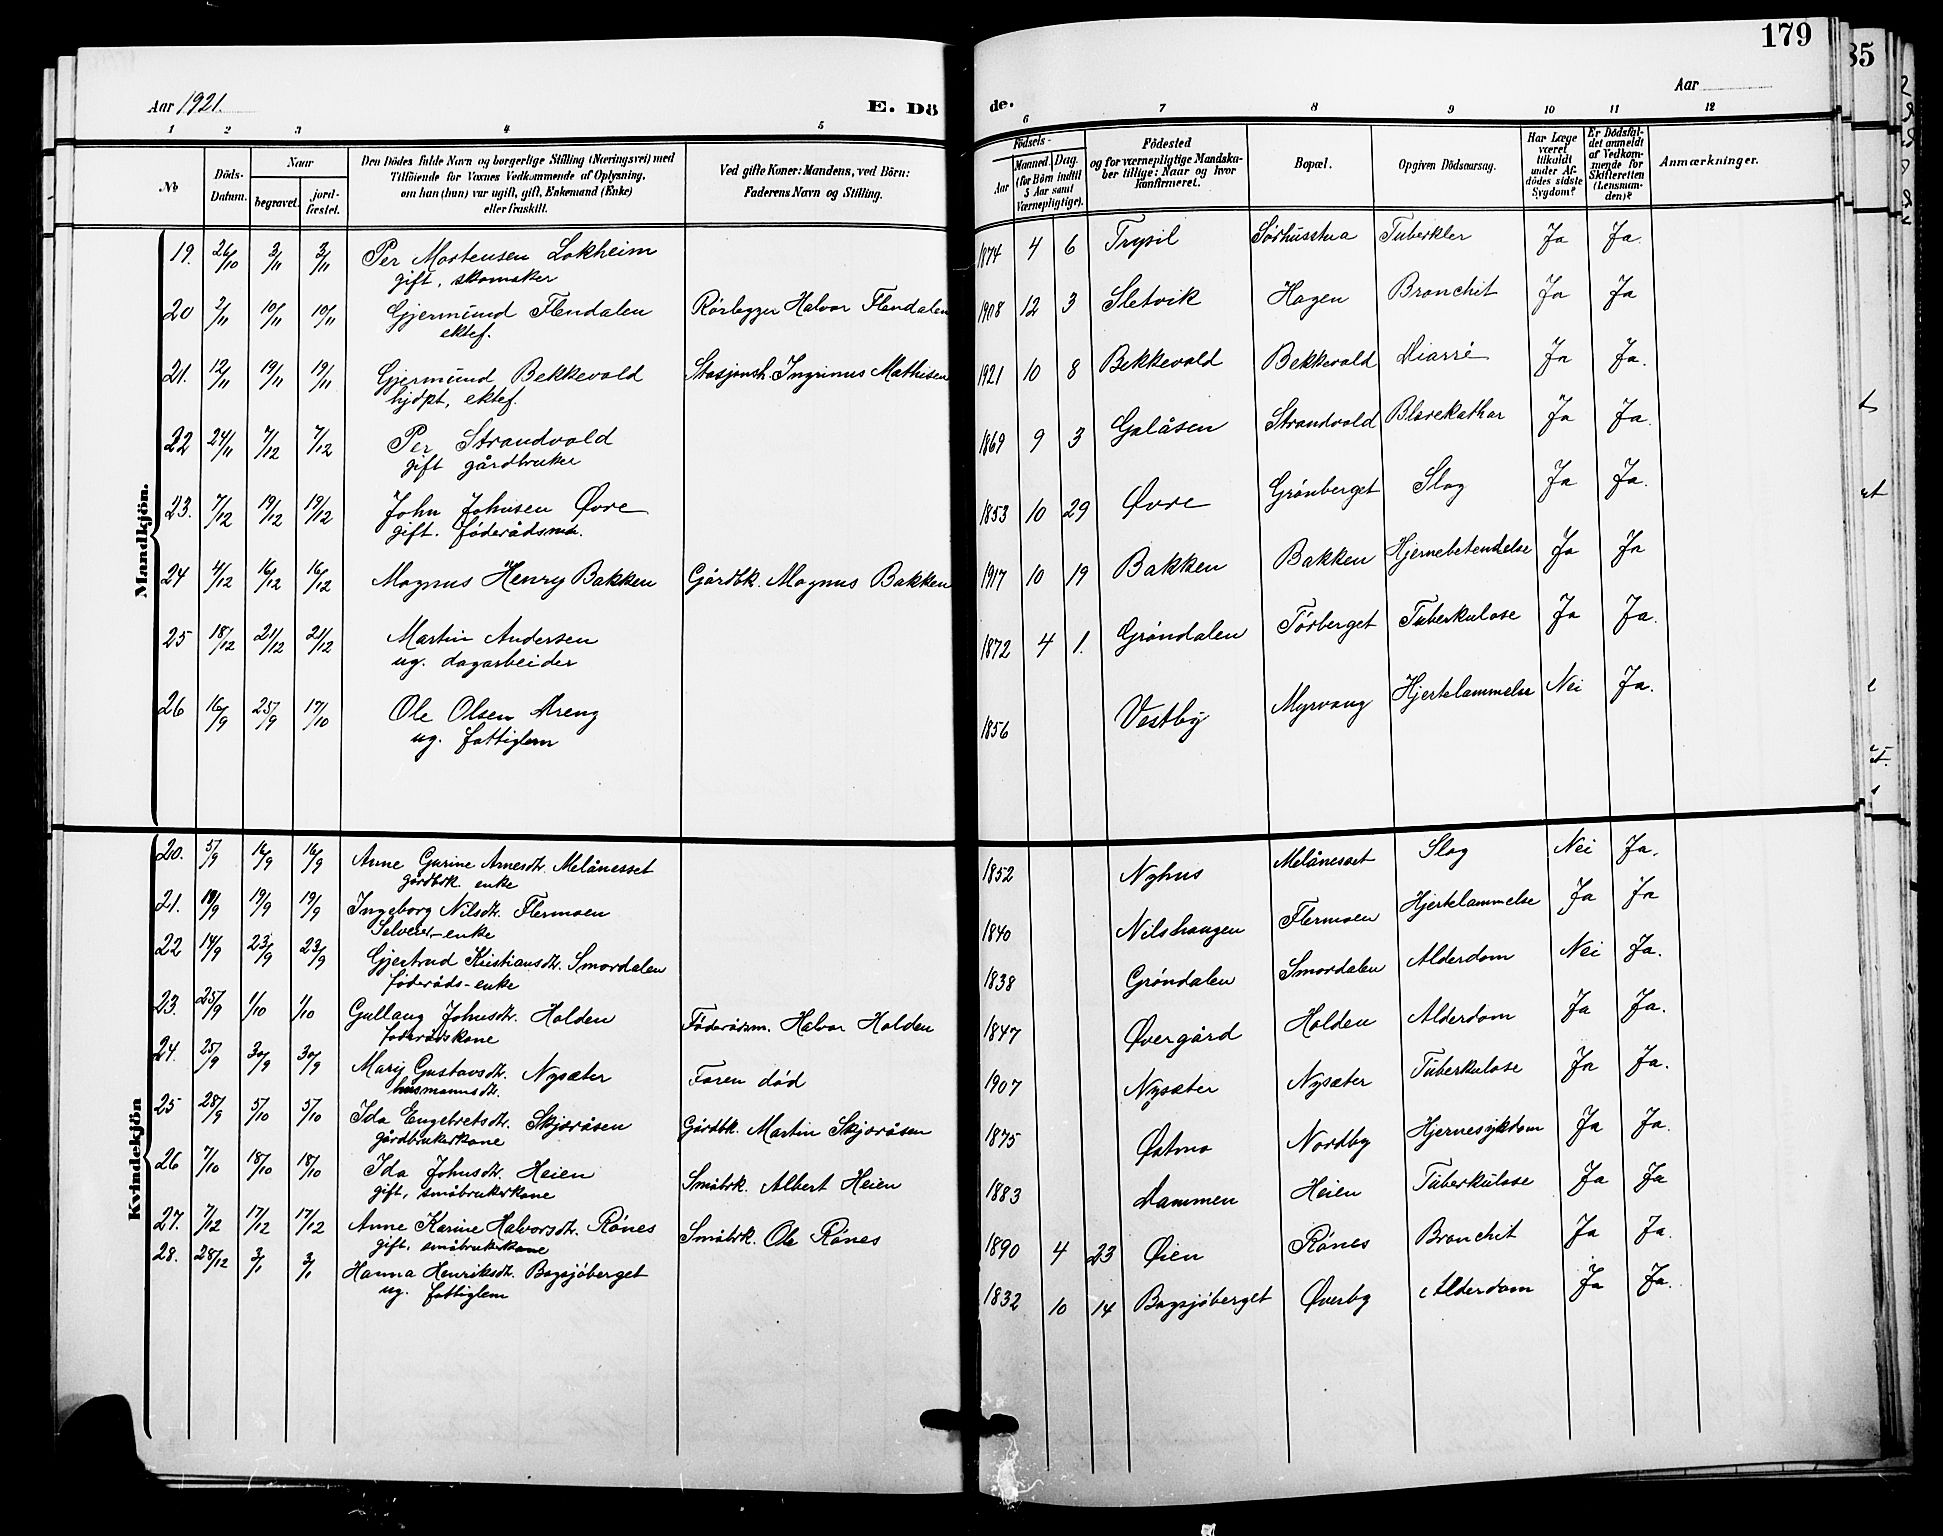 179
Aar 1921.
E. Dö
de.
Aar
1 2 3 4 5
6 7 8 9 10 11 12
№
Döds-Datum.
Naar
begravet.
jord-fæstet.
Den Dödes fulde Navn og borgerlige Stilling (Næringsvei) med
Tilföiende for Voxnes Vedkommende af Oplysning,
om han (hun) var ugift, gift, Enkemand (Enke)
eller fraskilt.
Ved gifte Koner: Mandens, ved Börn:
Faderens Navn og Stilling.
Födsels-
Aar
Maaned. Dag.
(for Börn indtil
5 Aar samt
Værnepligtige).
Födested
og for værnepligtige Mandska-
ber tillige: Naar og hvor
konfirmeret.
Bopæl.
Opgiven Dödsaarsag.
Har Læge
været
tilkaldt
under Af-
dödes sidste
Sygdom?
Er Dödsfal-
det anmeldt
af Vedkom-
mende for
Skifteretten
(Lensman-
den)?
Anmærkninger.
Mandkjön.
19. 26/10 3/11 3/11 Per Mortensen Lokheim 1874 4 6 Trysil Sørhusstua Tuberkler Ja Ja.
gift, skomaker
20 2/11 10/11 10/11 Gjermund Flendalen Rørlegger Halvor Flendalen 1908 12 3 Sletvik Hagen Bronchit Ja Ja
ektef.
21. 12/11 19/11 19/11 Gjermund Bekkevold Stasjonsh. Ingrinus Mathisen 1921 10 8 Bekkevold Bekkevold Diarré Ja Ja.
hjdpt, ektef.
22 24/11 7/12 7/12 Per Strandvold 1869 9 3 Galåsen Strandvold Blærekathar Ja Ja.
gift gårdbruker
23. 7/12 19/12 19/12 John Johnsen Øvre 1853 10 29 Øvre Grønberget Slag Ja Ja.
gift. føderådsm.
24 4/12 16/12 16/12 Magnus Henry Bakken Gårdbk. Magnus Bakken 1917 10 19 Bakken Bakken Hjernebetendelse Ja Ja
25 18/12 21/12 21/12 Martin Andersen 1872 4 1. Grøndalen Tørberget Tuberkulose Ja Ja.
ug. dagarbeider
26 16/9 25/9 17/10 Ole Olsen Dreng 1856 Vestby Myrvang Hjerteslammelse Nei Ja.
ug. fattiglem
Kvindekjön
20. 5/9 16/9 16/9 Anne Gurine Arnesdtr. Melånesset 1852 Nyhus Melånesset Slag Nei Ja.
gårdbrk. enke
21. 19/9 19/9 Ingeborg Nilsdtr. Flermoen 1840 Nilshaugen Flermoen Hjertelammelse Ja Ja
Selveier-enke
22 14/9 23/9 23/9 Gjertrud Kristiansdtr. Smordalen 1838 Grøndalen Smordalen Alderdom Nei Ja.
føderåds-enke
23. 25/9 1/10 1/10 Gullaug Johnsdtr. Holden Føderådsm. Halvor Holden 1847 Øvergård Holden Alderdom Ja Ja.
føderådskone
24. 25/9 30/9 30/9 Mary Gustavsdtr. Nysæter Faren død 1907 Nysæter Nysæter Tuberkulose Ja Ja.
husmannsdtr.
25 28/9 5/10 5/10 Ida Engebretsdtr. Skjæråsen Gårdbk. Martin Skjæråsen 1875 Østmo Nordby Hjernesykdom Ja Ja.
gårdbrukerkone
26 7/10 18/10 18/10 Ida Johnsdtr. Heien Småbrk. Albert Heien 1883 Dammen Heien Tuberkulose Ja Ja
gift, småbrukerkone
27. 7/12 17/12 17/12 Anne Karine Halvorsdtr. Rønes Småbrk. Ole Rønes 1890 4 23 Øien Rønes Bronchit Ja Ja.
gift, småbrukerkone
28. 28/12 3/1 3/1 Hanna Henriksdtr. Bagsjöberget 1832 10 14 Bagsjöberget Øverby Alderdom Ja Ja.
ug. fattiglem